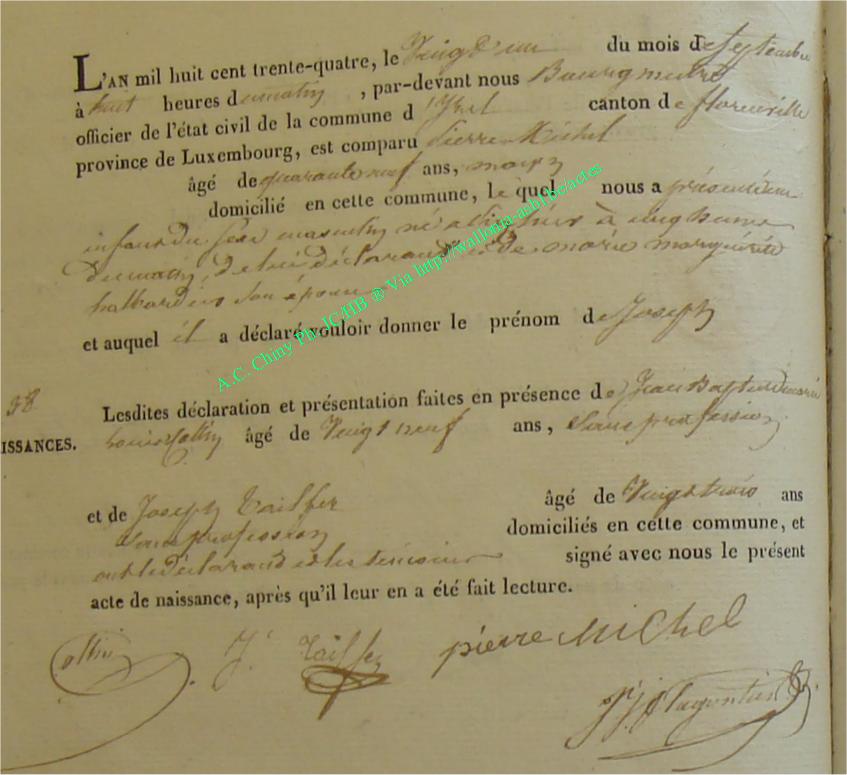 L'AN mil huit cent trente-quatre, le Vingt un du mois de Septembre
à huit heures du matin, par-devant nous Bourgmestre
officier de l'état civil de la commune d'Izel canton de florenville
province de Luxembourg, est comparu pierre Michel
âgé de quarante neuf ans,
domicilié en cette commune, lequel nous a présenté un
enfant du sexe masculin né hier à cinq heures
du matin, de lui déclarant et de marie marguerite
son épouse
et auquel il a déclaré vouloir donner le prénom de Joseph
A.C. Chiny Ph. JC/HB ® Via http://wallonia-asbl.be/actes
38
ISSANCES.
Lesdites déclaration et présentation faites en présence de Jean Baptiste
Louis Collin âgé de Vingt neuf ans, Sans profession
et de Joseph Tailfer âgé de Vingt trois ans
Sans profession domiciliés en cette commune, et
ont le déclarant et les témoins signé avec nous le présent
acte de naissance, après qu'il leur en a été fait lecture.
Collin J. Tailfer pierre Michel